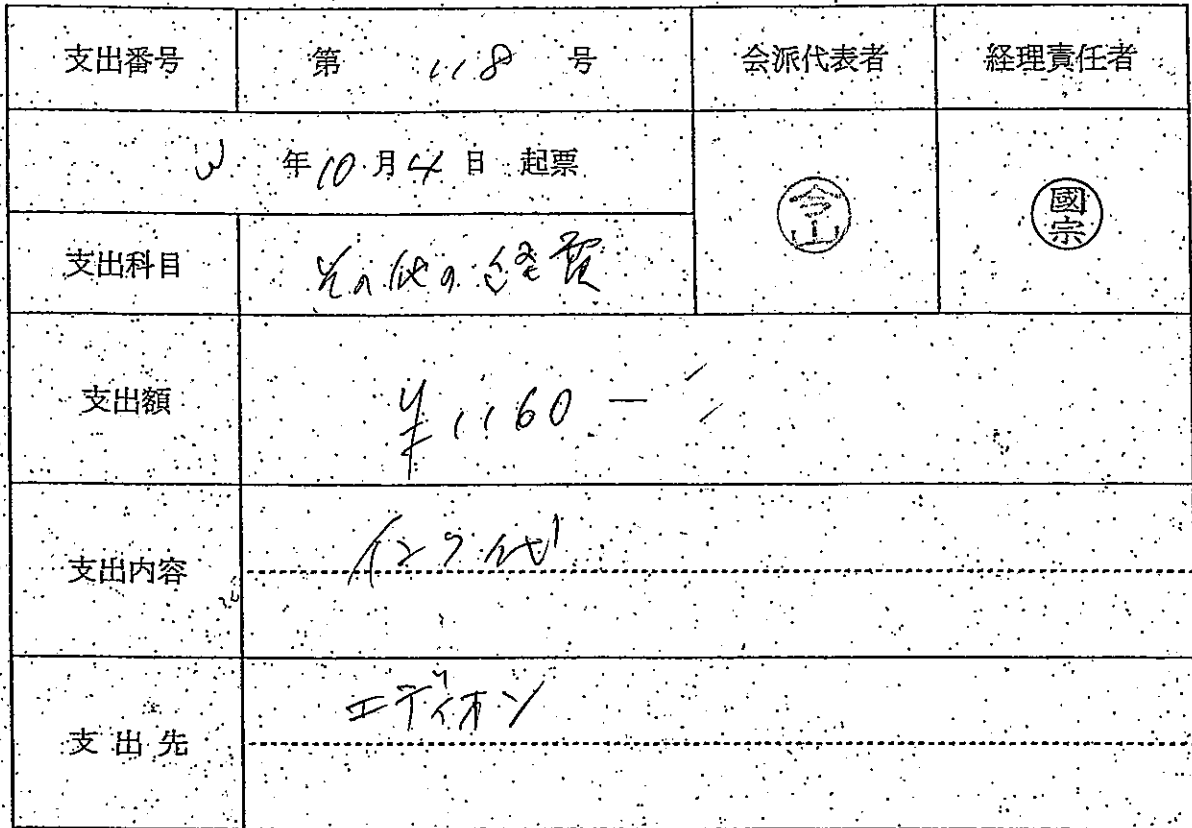 支出番号 第 118 号 会派代表者 経理責任者
3 年 10 月 4 日 起票
今山 國宗
支出科目 その他の経費
支出額 ¥1160-
支出内容 インク代
支出先 エディオン